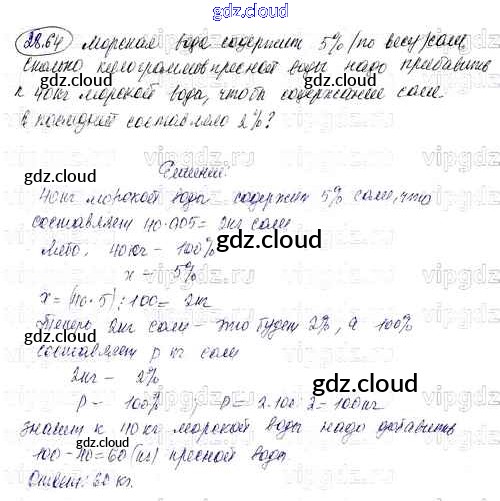 gdz.cloud
28.64 Морская вода содержит 5% (по весу) соли,
Сколько килограммов пресной воды надо прибавить
к 40 кг морской вода, чтобы содержание соли
в последней составляло 2%?
Решение:
40 кг морской вода содержит 5% соли, что
составляет 40·0.05 = 2кг соли
Либо, 40кг - 100%
x - 5%
x = (40·5):100 = 2кг
Теперь 2кг соли - это будет 2%, а 100%
составляет p кг соли
2кг - 2%
p - 100% p = 2·100:2 = 100кг
значит к 40кг морской вода надо добавить
100-40=60(кг) пресной вода
Ответ: 60 кг.
gdz.cloud
gdz.cloud
gdz.cloud
gdz.cloud
gdz.cloud
gdz.cloud
gdz.cloud
gdz.cloud